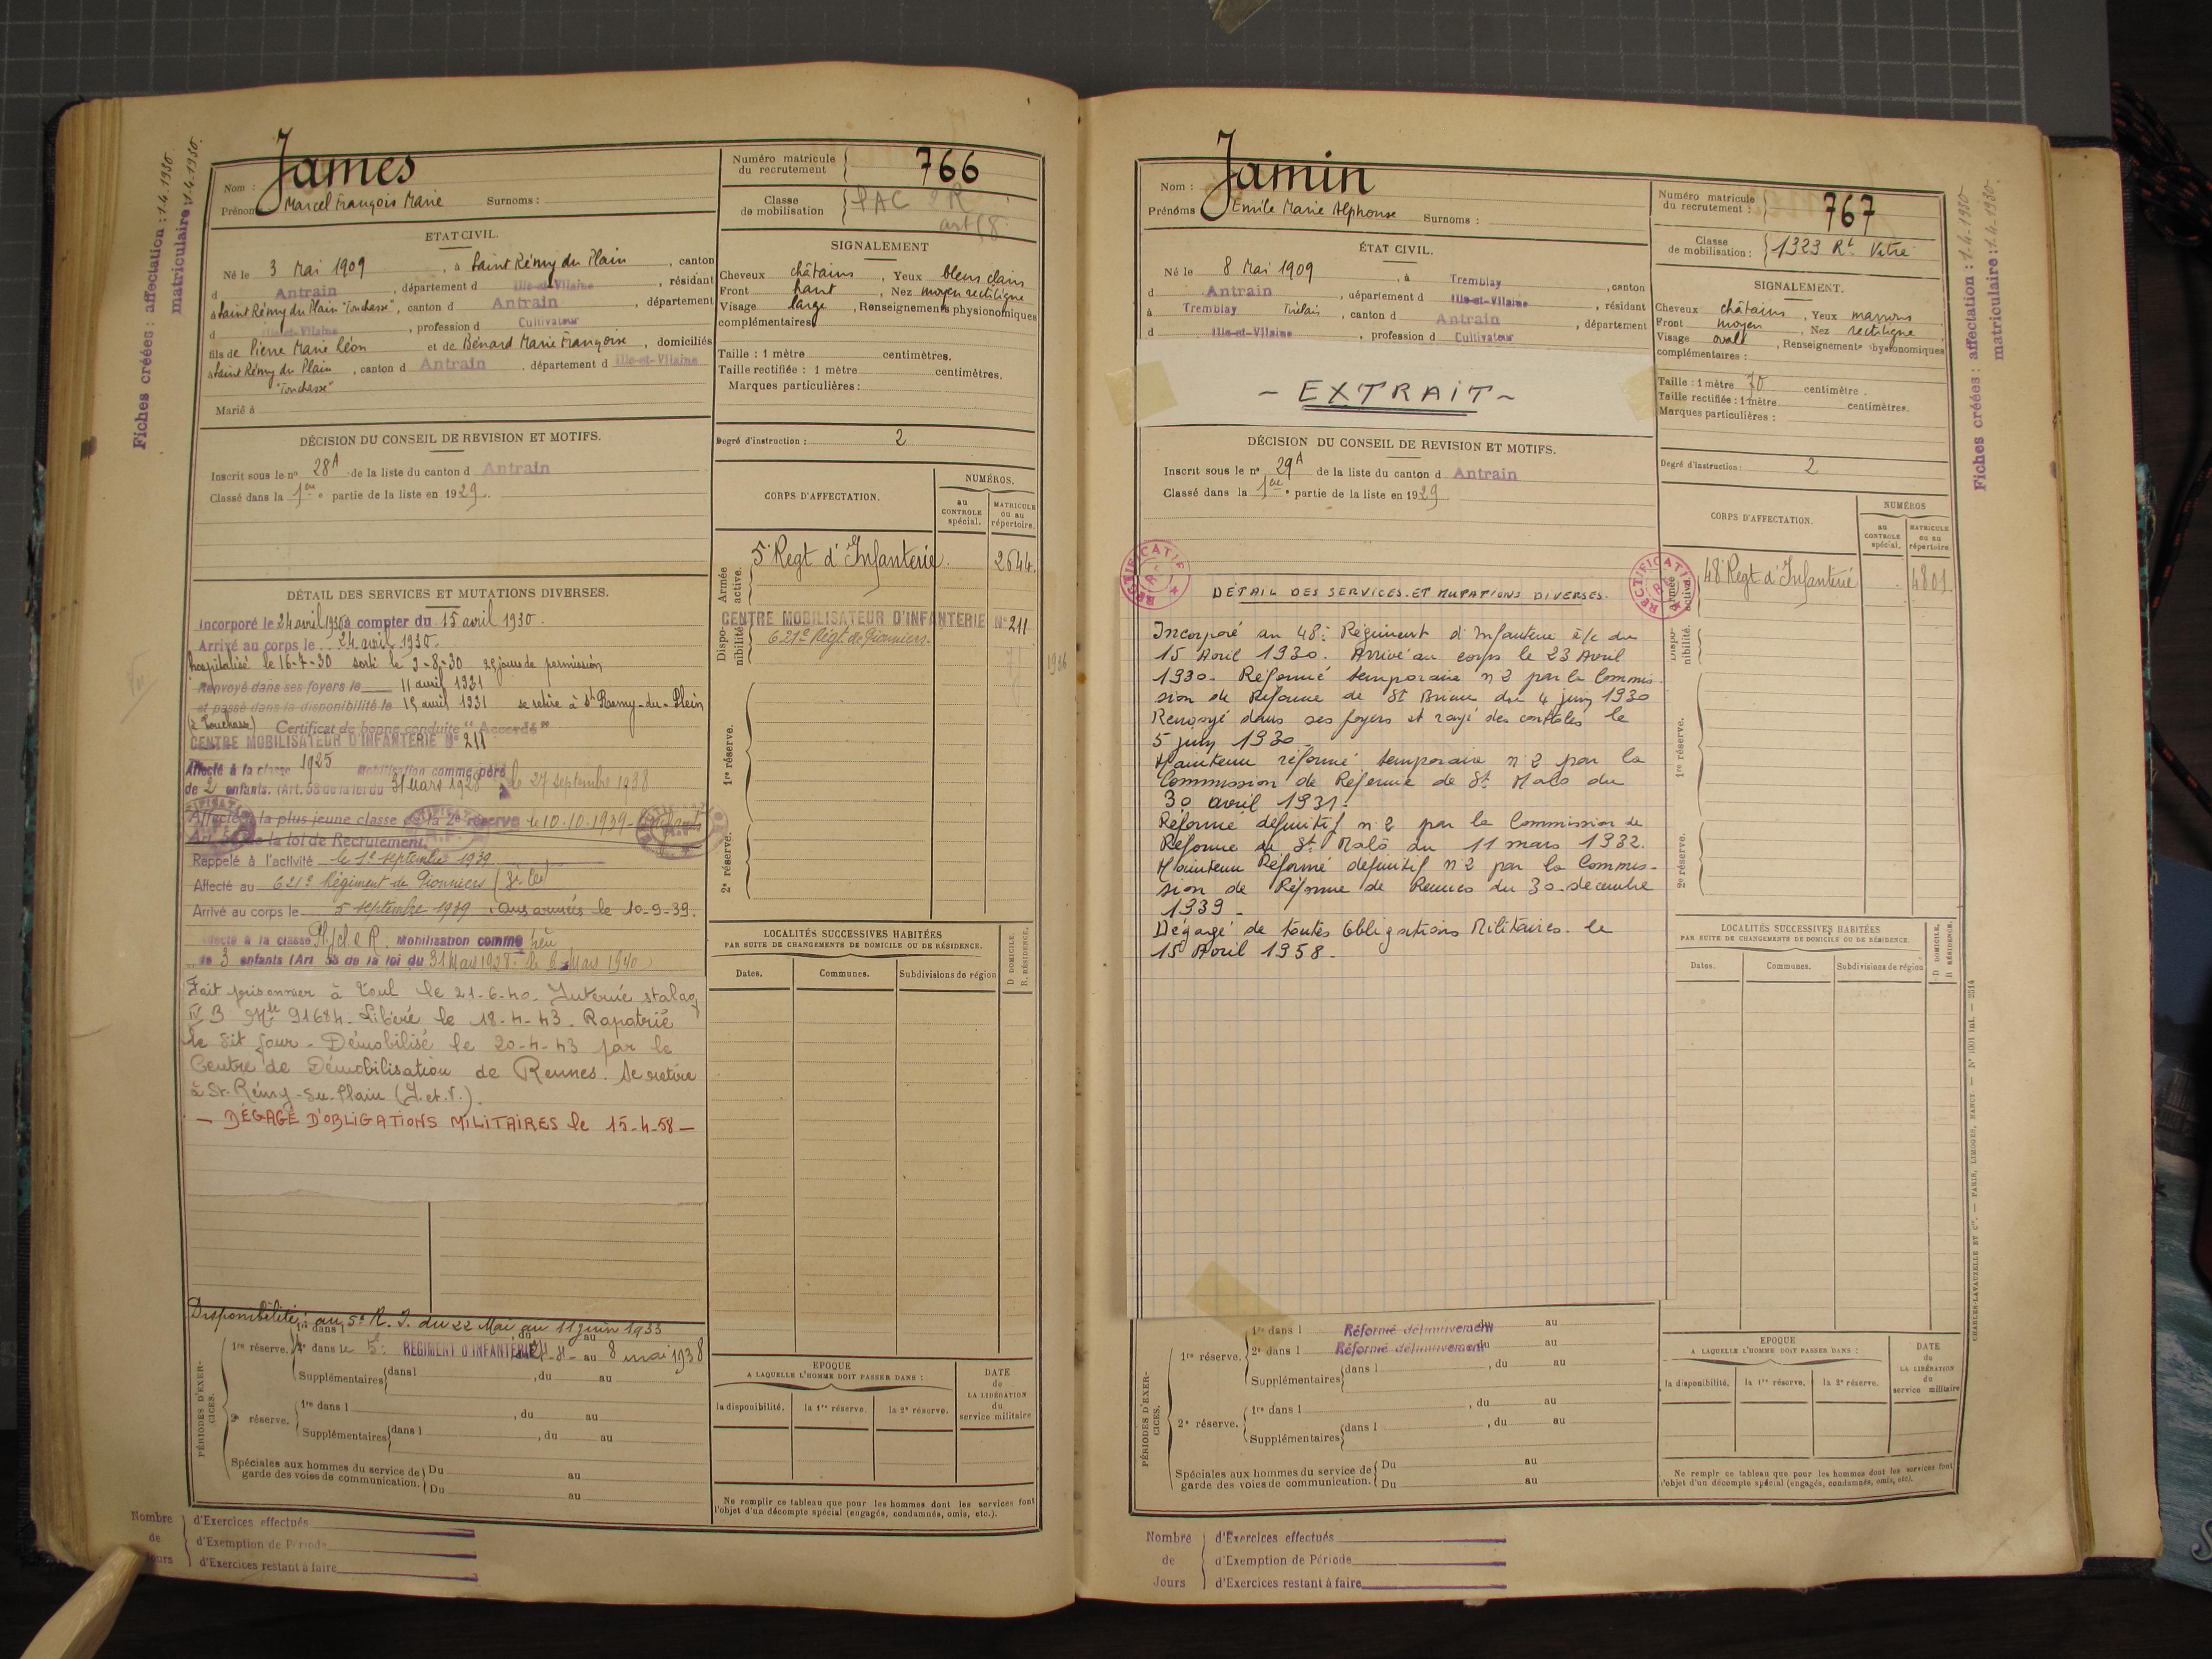 Fiches créées : affectation : 1.4.1930.
matriculaire : 1.4.1930.
Nom : James
Prénoms Marcel François Marie Surnoms :
Numéro matricule du recrutement 766
Classe de mobilisation PAC 2R
art 58
ETAT CIVIL.
Né le 3 Mai 1909, à Saint Rémy du Plain, canton
d Antrain, département d Ille-et-Vilaine, résidant
à Saint Rémy du Plain "Touchasse", canton d Antrain, département
d Ille-et-Vilaine, profession d Cultivateur
fils de Pierre Marie Léon et de Bénard Marie Françoise, domiciliés
à Saint Rémy du Plain, canton d Antrain, département d Ille-et-Vilaine
"Touchasse"
Marié à
SIGNALEMENT
Cheveux châtains, Yeux bleus clairs
Front haut, Nez moyen rectiligne
Visage large, Renseignements physionomiques
complémentaires
Taille : 1 mètre centimètres.
Taille rectifiée : 1 mètre centimètres.
Marques particulières :
Degré d'instruction : 2
DÉCISION DU CONSEIL DE REVISION ET MOTIFS.
Inscrit sous le nº 28A de la liste du canton d Antrain
Classé dans la 1ère partie de la liste en 1929.
CORPS D'AFFECTATION.
NUMÉROS.
au CONTROLE spécial.
MATRICULE ou au répertoire.
Armée active.
5e Regt d'Infanterie. 2644.
Disponibilité.
CENTRE MOBILISATEUR D'INFANTERIE Nº 211
621e Régt de Pionniers
1936
1re réserve.
2e réserve.
DÉTAIL DES SERVICES ET MUTATIONS DIVERSES.
Incorporé le 24 avril 1930 à compter du 15 avril 1930.
Arrivé au corps le 24 avril 1930.
hospitalisé le 16-7-30 sorti le 2-8-30 25 jours de permission
Renvoyé dans ses foyers le 11 avril 1931
et passé dans la disponibilité le 15 avril 1931 se retire à St Remy-du-Plein
(la Touchasse) Certificat de bonne conduite "Accordé"
CENTRE MOBILISATEUR D'INFANTERIE Nº 211
Affecté à la classe 1925 Mobilisation comme père
de 2 enfants. (Art. 58 de la loi du 31 Mars 1928 le 27 septembre 1938
Affecté à la plus jeune classe de la 2e réserve le 10-10-1939
Art. 58 de la loi de Recrutement.
Rappelé à l'activité le 1er septembre 1939
Affecté au 621e Régiment de Pionniers (3e Cie)
Arrivé au corps le 5 septembre 1939. Aux armées le 10-9-39.
Affecté à la classe Pl/cl 2e R. Mobilisation comme père
de 3 enfants (Art 58 de la loi du 31 Mars 1928. le 6 Mars 1940
Fait prisonnier à Toul le 21-6-40. Interné stalag
IV B Mle 91684. Libéré le 18-4-43. Rapatrié
le dit jour. Démobilisé le 20-4-43 par le
Centre de Démobilisation de Rennes. Se retire
à St-Rémy-du-Plain (I.et.V.).
— DÉGAGÉ D'OBLIGATIONS MILITAIRES le 15-4-58 —
LOCALITÉS SUCCESSIVES HABITÉES
PAR SUITE DE CHANGEMENTS DE DOMICILE OU DE RÉSIDENCE.
D. DOMICILE. R. RÉSIDENCE.
Dates. Communes. Subdivisions de région
Disponibilité : au 5e R.I. du 22 Mai au 11 juin 1933
PÉRIODES D'EXERCICES.
1re réserve. 1re dans l , du au
2e dans le 5e REGIMENT D'INFANTERIE du 21-4- au 8 mai 1938
Supplémentaires dans l , du au
2e réserve. 1re dans l , du au
Supplémentaires dans l , du au
Spéciales aux hommes du service de garde des voies de communication. Du au
Du au
EPOQUE
A LAQUELLE L'HOMME DOIT PASSER DANS :
la disponibilité. la 1re réserve. la 2e réserve.
DATE de LA LIBÉRATION du service militaire
Ne remplir ce tableau que pour les hommes dont les services font
l'objet d'un décompte spécial (engagés, condamnés, omis, etc.).
Nombre de Jours
d'Exercices effectués
d'Exemption de Période
d'Exercices restant à faire
Nom : Jamin
Prénoms Emile Marie Alphonse Surnoms :
Numéro matricule du recrutement : 767
Classe de mobilisation : 1323 Rt Vitré
Fiches créées : affectation : 1.4.1930
matriculaire : 1.4.1930.
ÉTAT CIVIL.
Né le 8 Mai 1909, à Tremblay, canton
d Antrain, département d Ille-et-Vilaine, résidant
à Tremblay, canton d Antrain, département
d Ille-et-Vilaine, profession d Cultivateur
- EXTRAIT -
SIGNALEMENT.
Cheveux châtains, Yeux marrons
Front moyen, Nez rectiligne
Visage ovale, Renseignements physionomiques
complémentaires :
Taille : 1 mètre 70 centimètre.
Taille rectifiée : 1 mètre centimètres.
Marques particulières :
Degré d'instruction : 2
DÉCISION DU CONSEIL DE REVISION ET MOTIFS.
Inscrit sous le nº 29A de la liste du canton d Antrain
Classé dans la 1ère partie de la liste en 1929
CORPS D'AFFECTATION.
NUMÉROS
au CONTROLE spécial.
MATRICULE ou au répertoire.
RECTIFICATIF
Armée active.
48e Regt d'Infanterie 4801
Disponibilité.
1re réserve.
2e réserve.
DETAIL DES SERVICES ET MUTATIONS DIVERSES.
Incorporé au 48e Régiment d'Infanterie à/c du
15 Avril 1930. Arrivé au corps le 23 Avril
1930. Réformé temporaire n°2 par la Commis-
sion de Réforme de St Brieuc du 4 juin 1930
Renvoyé dans ses foyers et rayé des contrôles le
5 juin 1930.
Maintenu réformé temporaire n°2 par la
Commission de Réforme de St Malo du
30 avril 1931.
Réformé définitif n°2 par la Commission de
Réforme de St Malo du 11 mars 1932.
Maintenu Réformé définitif n°2 par la Commis-
sion de Réforme de Rennes du 30 décembre
1939.
Dégagé de toutes Obligations Militaires le
15 Avril 1958.
LOCALITÉS SUCCESSIVES HABITÉES
PAR SUITE DE CHANGEMENTS DE DOMICILE OU DE RÉSIDENCE.
D. DOMICILE. R. RÉSIDENCE.
Dates. Communes. Subdivisions de région
PÉRIODES D'EXERCICES.
1re réserve. 1re dans l Réformé définitivement au
2e dans l Réformé définitivement, du au
Supplémentaires dans l , du au
2e réserve. 1re dans l , du au
Supplémentaires dans l , du au
Spéciales aux hommes du service de garde des voies de communication. Du au
Du au
EPOQUE
A LAQUELLE L'HOMME DOIT PASSER DANS :
la disponibilité. la 1re réserve. la 2e réserve.
DATE du LA LIBÉRATION du service militaire
Ne remplir ce tableau que pour les hommes dont les services font
l'objet d'un décompte spécial (engagés, condamnés, omis, etc).
CHARLES-LAVAUZELLE ET Cie. — PARIS, LIMOGES, NANCY.
Nombre de Jours
d'Exercices effectués
d'Exemption de Période
d'Exercices restant à faire